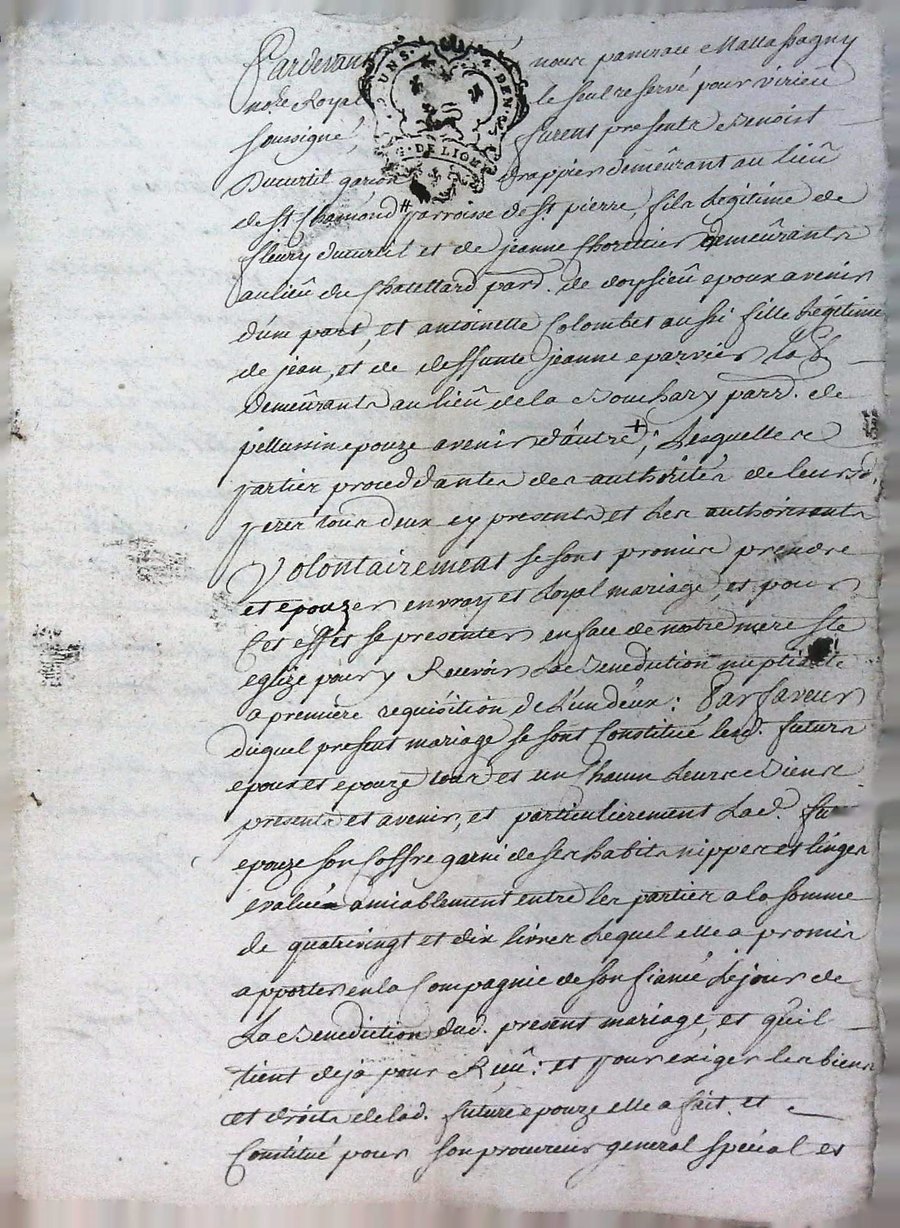 Pardevant nous pancrace Mattassagny
no.re Royal le seul reservé pour virieû
soussigné, furent presents Benoist
Ducurtil garson drappier demeûrant au lieû
de St Chamond # parroisse de St pierre, fils Legitime de
fleury ducurtil et de jeanne Choretier demeûrants
au lieû du Chatellard parr. de doysieû epoux avenir
d'une part, et antoinette Colombet aussi fille Légitime
de jean, et de deffunte jeanne eparvier
demeûrants au lieû de la Bouchary parr. de
pellussin epouze avenir d'autre +, Lesquelles
parties proceddantes des authorités de leursd.
peres tous deux cy presents et Les authorisants
Volontairement se sont promis prendre
et epouzer en vray et Loyal mariage, et pour
Cet effet se presenter en face de notre mere ste
eglize pour y Recevoir La Benediction nuptialle
a première requisition de L'un d'eux : Par faveur
duquel present mariage se sont Constitué lesd. futurs
epoux et epouze tous et un Chacun Leurs Biens
presents et avenir, et particulierement Lad. fu
epouze son Coffre garni de ses habits nippes et linges
evalué amiablement entre les parties a la somme
de quatrevingt et dix livres Lequel elle a promis
apporter en la Compagnie de son fiancé Le jour de
La Benediction dud. present mariage, et qu'il
tient deja pour Reçû : et pour exiger les biens
et droits de lad. future epouze elle a fait et
Constitué pour son procureur general special et
UNS. 4 DEN.
G. DE LION